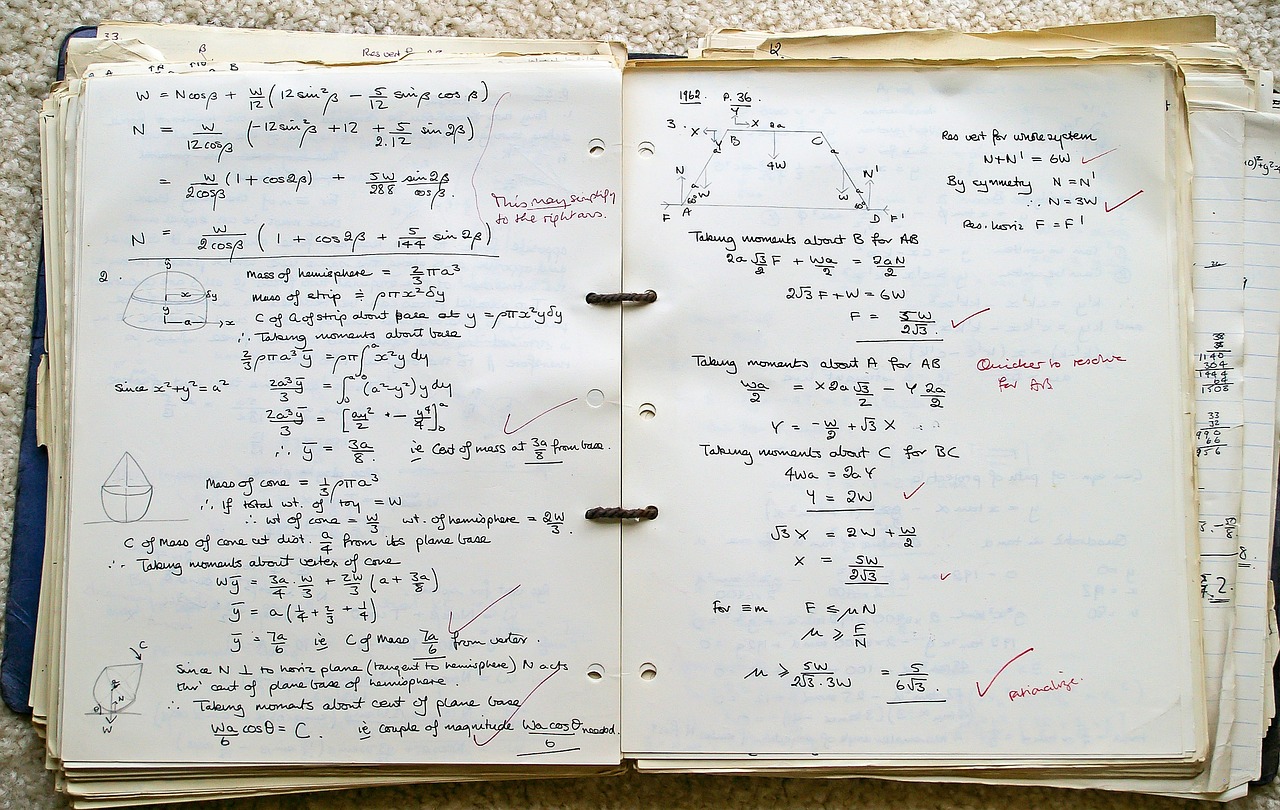 33.
β
Res vert
A B
W = N cos β + W/12 (12 sin²β − 5/12 sin β cos β)
N = W/12cosβ (−12 sin²β + 12 + 5/2.12 sin 2β)
= W/2cosβ (1 + cos 2β) + 5W/288 sin 2β/cos β.
This may simplify
to the right ans.
N = W/2cosβ (1 + cos 2β + 5/144 sin 2β)
2.
y
x δy
y
a x
Mass of hemisphere = 2/3 πa³
Mass of strip ≐ ρπx²δy
C of G of strip about base at y = ρπx²yδy
∴ Taking moments about base
2/3 ρπa³ȳ = ρπ∫₀ᵃ x²y dy
Since x²+y² = a² 2a³ȳ/3 = ∫₀ᵃ (a²−y²) y dy
2a³ȳ/3 = [ay²/2 − y⁴/4]₀ᵃ
∴ ȳ = 3a/8 ie Cent of mass at 3a/8 from base.
Mass of cone = 1/3 ρπa³
∴ If total wt. of toy = W
∴ wt of cone = W/3 wt. of hemisphere = 2W/3.
C of Mass of cone at dist. a/4 from its plane base
∴ Taking moments about vertex of cone
Wȳ = 3a/4 · W/3 + 2W/3 (a + 3a/8)
ȳ = a(1/4 + 2/3 + 1/4)
ȳ = 7a/6 ie C of Mass 7a/6 from vertex.
C
N
θ
W
Since N ⊥ to horiz plane (tangent to hemisphere) N acts
thro' cent of plane base of hemisphere.
∴ Taking moments about cent of plane base
Wa/6 cos θ = C. ie couple of magnitude Wa cos θ/6 needed.
1962. P. 36.
3.
Y
X X 2a
Y B C
a a
4W
N N'
a W W a
60° 60°
F A D F'
Res vert for whole system
N + N' = 6W
By symmetry N = N'
∴ N = 3W
Res. horiz F = F'
Taking moments about B for AB
2a √3/2 F + Wa/2 = 2aN/2
2√3 F + W = 6W
F = 5W/2√3.
Taking moments about A for AB
Quicker to resolve
for AB
Wa/2 = X 2a √3/2 − Y 2a/2
Y = −W/2 + √3 X
Taking moments about C for BC
4Wa = 2aY
Y = 2W
√3 X = 2W + W/2
X = 5W/2√3
For ≡m F ≤ μN
μ ≥ F/N
μ ≥ 5W/2√3·3W = 5/6√3.
rationalize.
38
38
1140
304
1444
64
1508
33
32
990
66
956
8.
2.